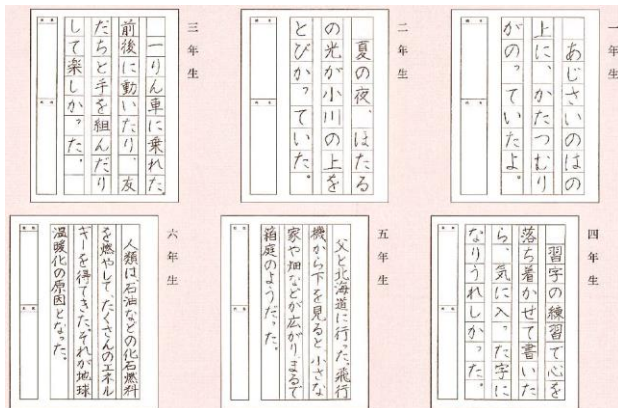 一年生
あじさいのはの
上に、かたつむり
がのっていたよ。
二年生
夏の夜、ほたる
の光が小川の上を
とびかっていた。
三年生
一りん車に乗れた。
前後に動いたり、友
だちと手を組んだり
して楽しかった。
四年生
習字の練習で心を
落ち着かせて書いた
ら、気に入った字に
なりうれしかった。
五年生
父と北海道に行った。飛行
機から下を見ると小さな
家や畑などが広がり、まるで
箱庭のようだった。
六年生
人類は石油などの化石燃料
を燃やして、たくさんのエネル
ギーを得てきた。それが地球
温暖化の原因となった。